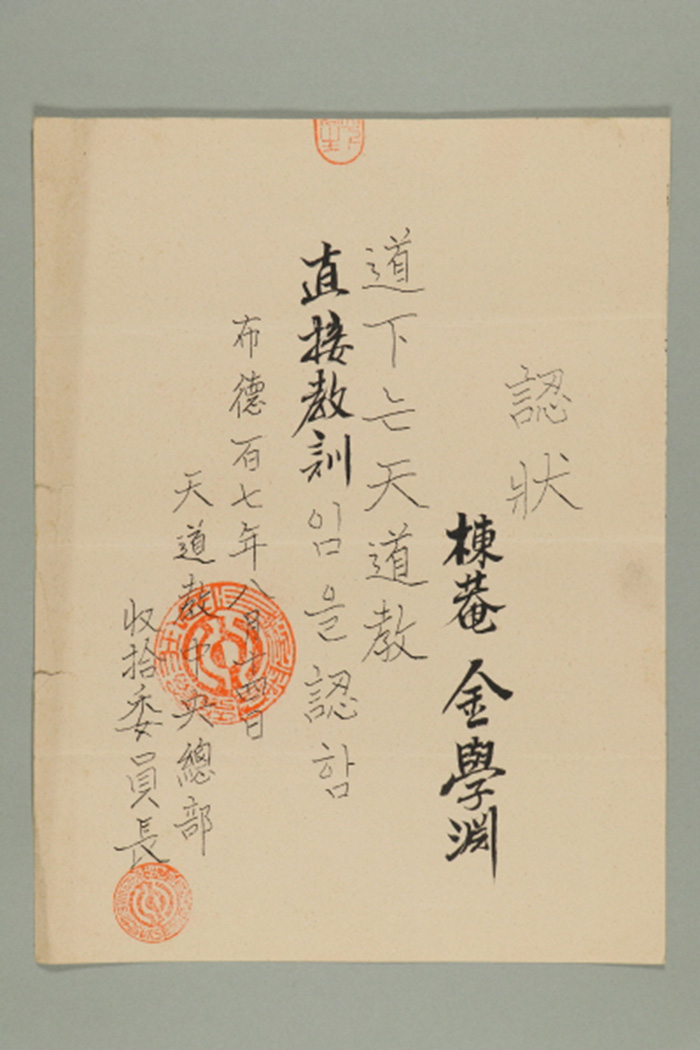 認狀
棟菴 金學淵
道下는天道敎
直接敎訓임을認함
布德百七年八月十四日
天道敎中央總部
收拾委員長